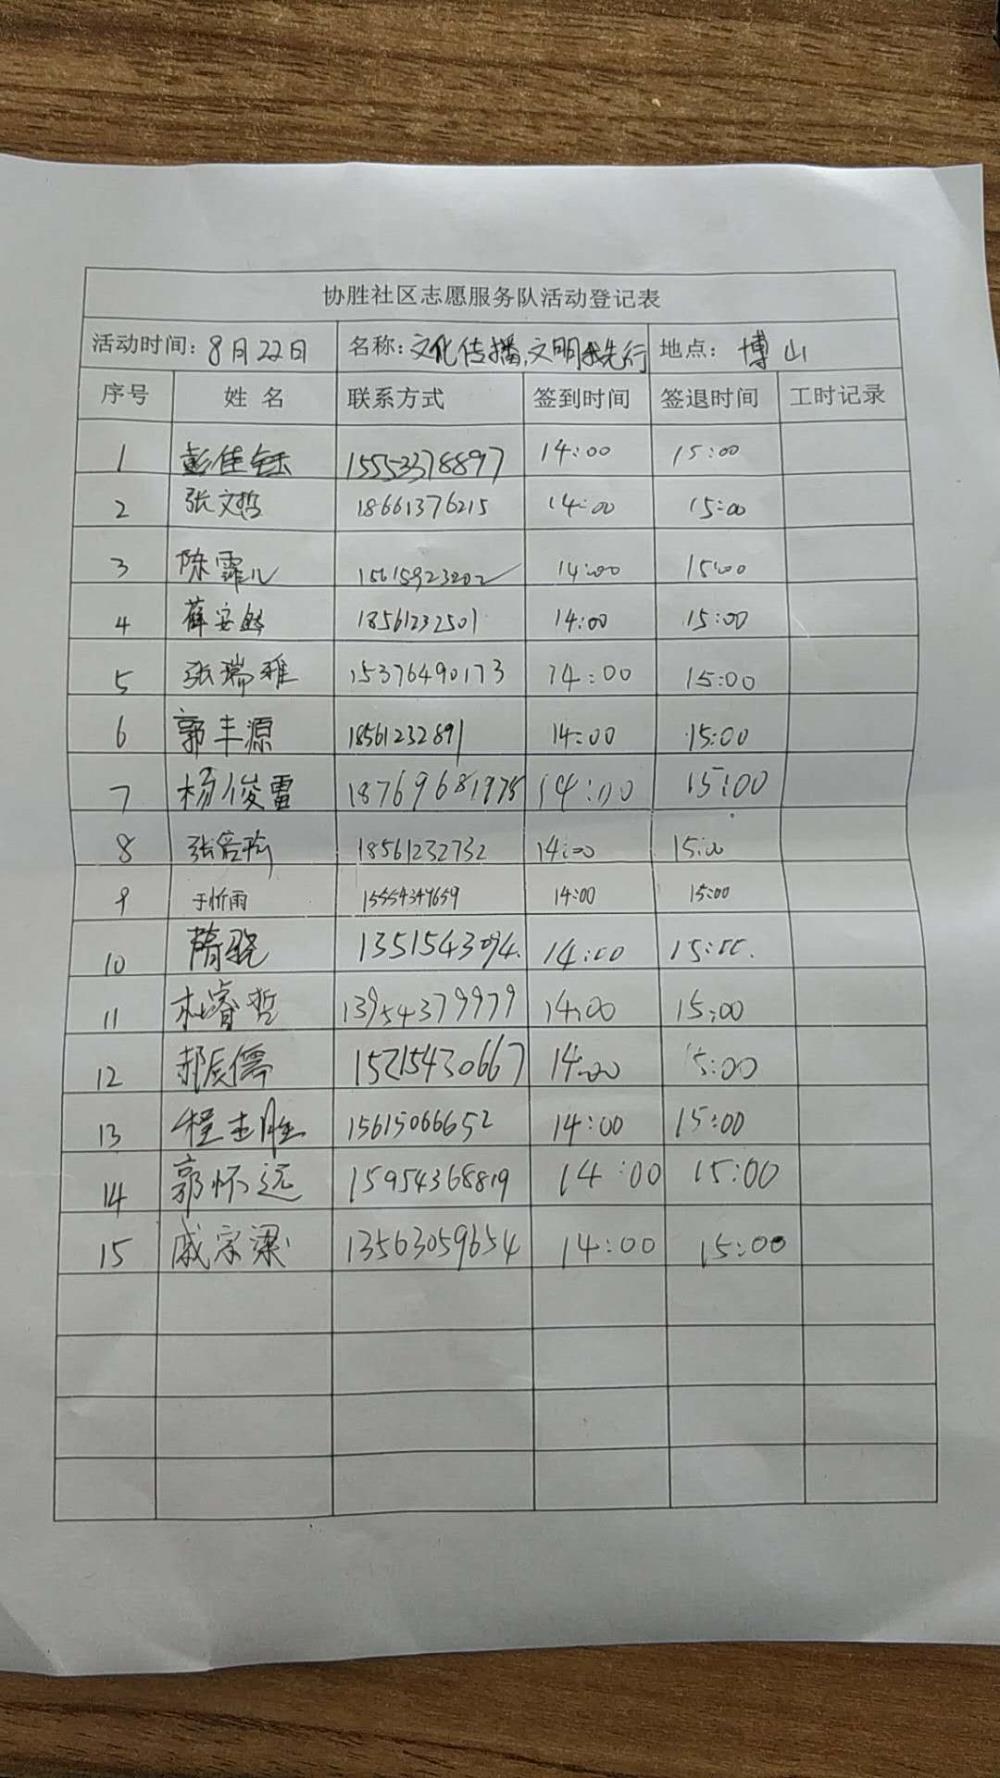 协胜社区志愿服务队活动登记表
活动时间：8月22日 名称：文化传播，文明我先行 地点：博山
序号 姓名 联系方式 签到时间 签退时间 工时记录
1 彭佳钰 15553378897 14:00 15:00
2 张文哲 18661376215 14:00 15:00
3 陈霏儿 15615923202 14:00 15:00
4 薛安 18561232501 14:00 15:00
5 张瑞雅 15376490173 14:00 15:00
6 郭丰源 18561232891 14:00 15:00
7 杨俊雷 18769681975 14:00 15:00
8 张 18561232732 14:00 15:00
9 于忻雨 15554349659 14:00 15:00
10 隋 14:00 15:00
11 杜睿哲 13954379979 14:00 15:00
12 郝辰儒 15215430667 14:00 15:00
13 程志胜 15615066652 14:00 15:00
14 郭怀远 15954368819 14:00 15:00
15 戚宗梁 13563059654 14:00 15:00